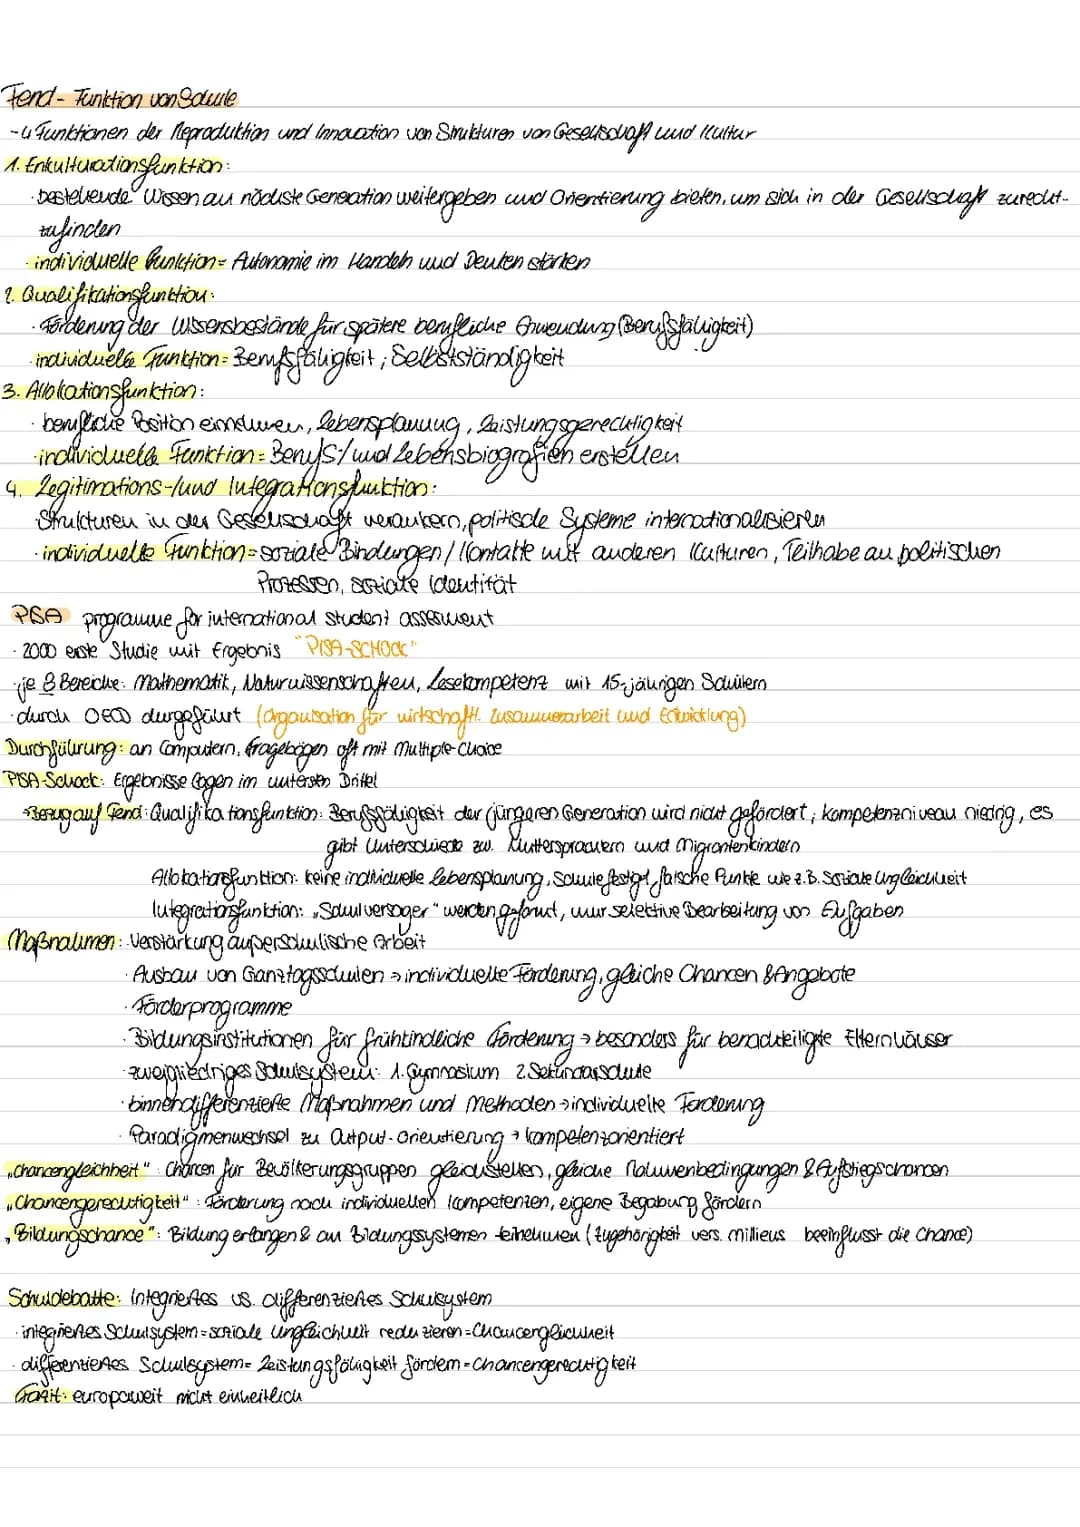 Fend - Funktion von Schule
- 4 Funktionen der Reproduktion und Innovation von Strukturen von Gesellschaft und Kultur
1. Enkulturationsfunktion:
· bestehende Wissen an nächste Generation weitergeben und Orientierung bieten, um sich in der Gesellschaft zurecht-
zufinden
· individuelle Funktion = Autonomie im Handeln und Denken stärken
2. Qualifikationsfunktion:
· Förderung der Wissensbestände für spätere berufliche Anwendung (Berufsfähigkeit)
· individuelle Funktion = Berufsfähigkeit, Selbstständigkeit
3. Allokationsfunktion:
· berufliche Position einnehmen, Lebensplanung, Leistungsgerechtigkeit
· individuelle Funktion = Berufs-/und Lebensbiografien erstellen
4. Legitimations-/und Integrationsfunktion:
Strukturen in der Gesellschaft verankern, politische Systeme internationalisieren
· individuelle Funktion = soziale Bindungen / Kontakte mit anderen Kulturen, Teilhabe an politischen
Prozessen, soziale Identität
PISA programme for international student assesment
· 2000 erste Studie mit Ergebnis "PISA-SCHOCK"
· je 3 Bereiche: Mathematik, Naturwissenschaften, Lesekompetenz mit 15-jährigen Schülern
· durch OECD durgeführt (Organisation für wirtschaftl. Zusammenarbeit und Entwicklung)
Durchführung: an Computern, Fragebögen oft mit Multiple-Choice
PISA-Schock: Ergebnisse lagen im untersten Drittel
→ Bezug auf Fend: Qualifikationsfunktion: Berufsfähigkeit der jüngeren Generation wird nicht gefördert, Kompetenzniveau niedrig, es
gibt Unterschiede zw. Muttersprachlern und Migrantenkindern
Allokationsfunktion: keine individuelle Lebensplanung, Schule festigt falsche Punkte wie z.B. Soziale Ungleichheit
Integrationsfunktion: „Schulversager" werden geformt, nur selektive Bearbeitung von Aufgaben
Maßnahmen: Verstärkung außerschulische Arbeit
· Ausbau von Ganztagsschulen → individuelle Förderung, gleiche Chancen & Angebote
· Förderprogramme
· Bildungsinstitutionen für frühkindliche Förderung → besonders für benachteiligte Elternhäuser
· zweigliedriges Schulsystem: 1. Gymnasium 2. Sekundarschule
· binnendifferenzierte Maßnahmen und Methoden → individuelle Förderung
· Paradigmenwechsel zu Output-Orientierung → kompetenzorientiert
„Chancengleichheit" : Chancen für Bevölkerungsgruppen gleichstellen, gleiche Rahmenbedingungen & Aufstiegschancen
„Chancengerechtigkeit" : Förderung nach individuellen Kompetenzen, eigene Begabung fördern
„Bildungschance" : Bildung erlangen & an Bildungssystemen teilnehmen (Zugehörigkeit vers. Millieus beeinflusst die Chance)
Schuldebatte: Integriertes vs. differenziertes Schulsystem
· integriertes Schulsystem = soziale Ungleichheit reduzieren = Chancengleichheit
· differenziertes Schulsystem = Leistungsfähigkeit fördern = Chancengerechtigkeit
Fazit: europaweit nicht einheitlich